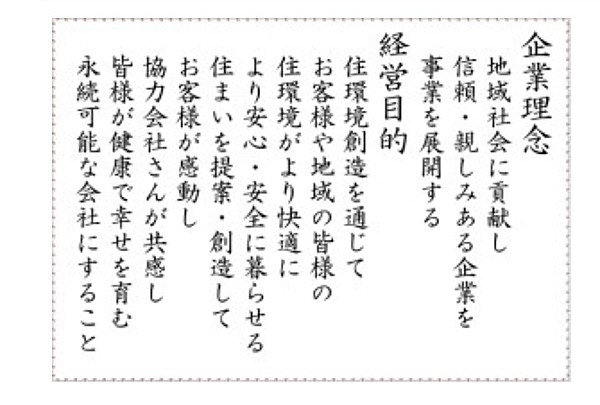 企業理念
地域社会に貢献し
信頼・親しみある企業を
事業を展開する
経営目的
住環境創造を通じて
お客様や地域の皆様の
住環境がより快適に
より安心・安全に暮らせる
住まいを提案・創造して
お客様が感動し
協力会社さんが共感し
皆様が健康で幸せを育む
永続可能な会社にすること